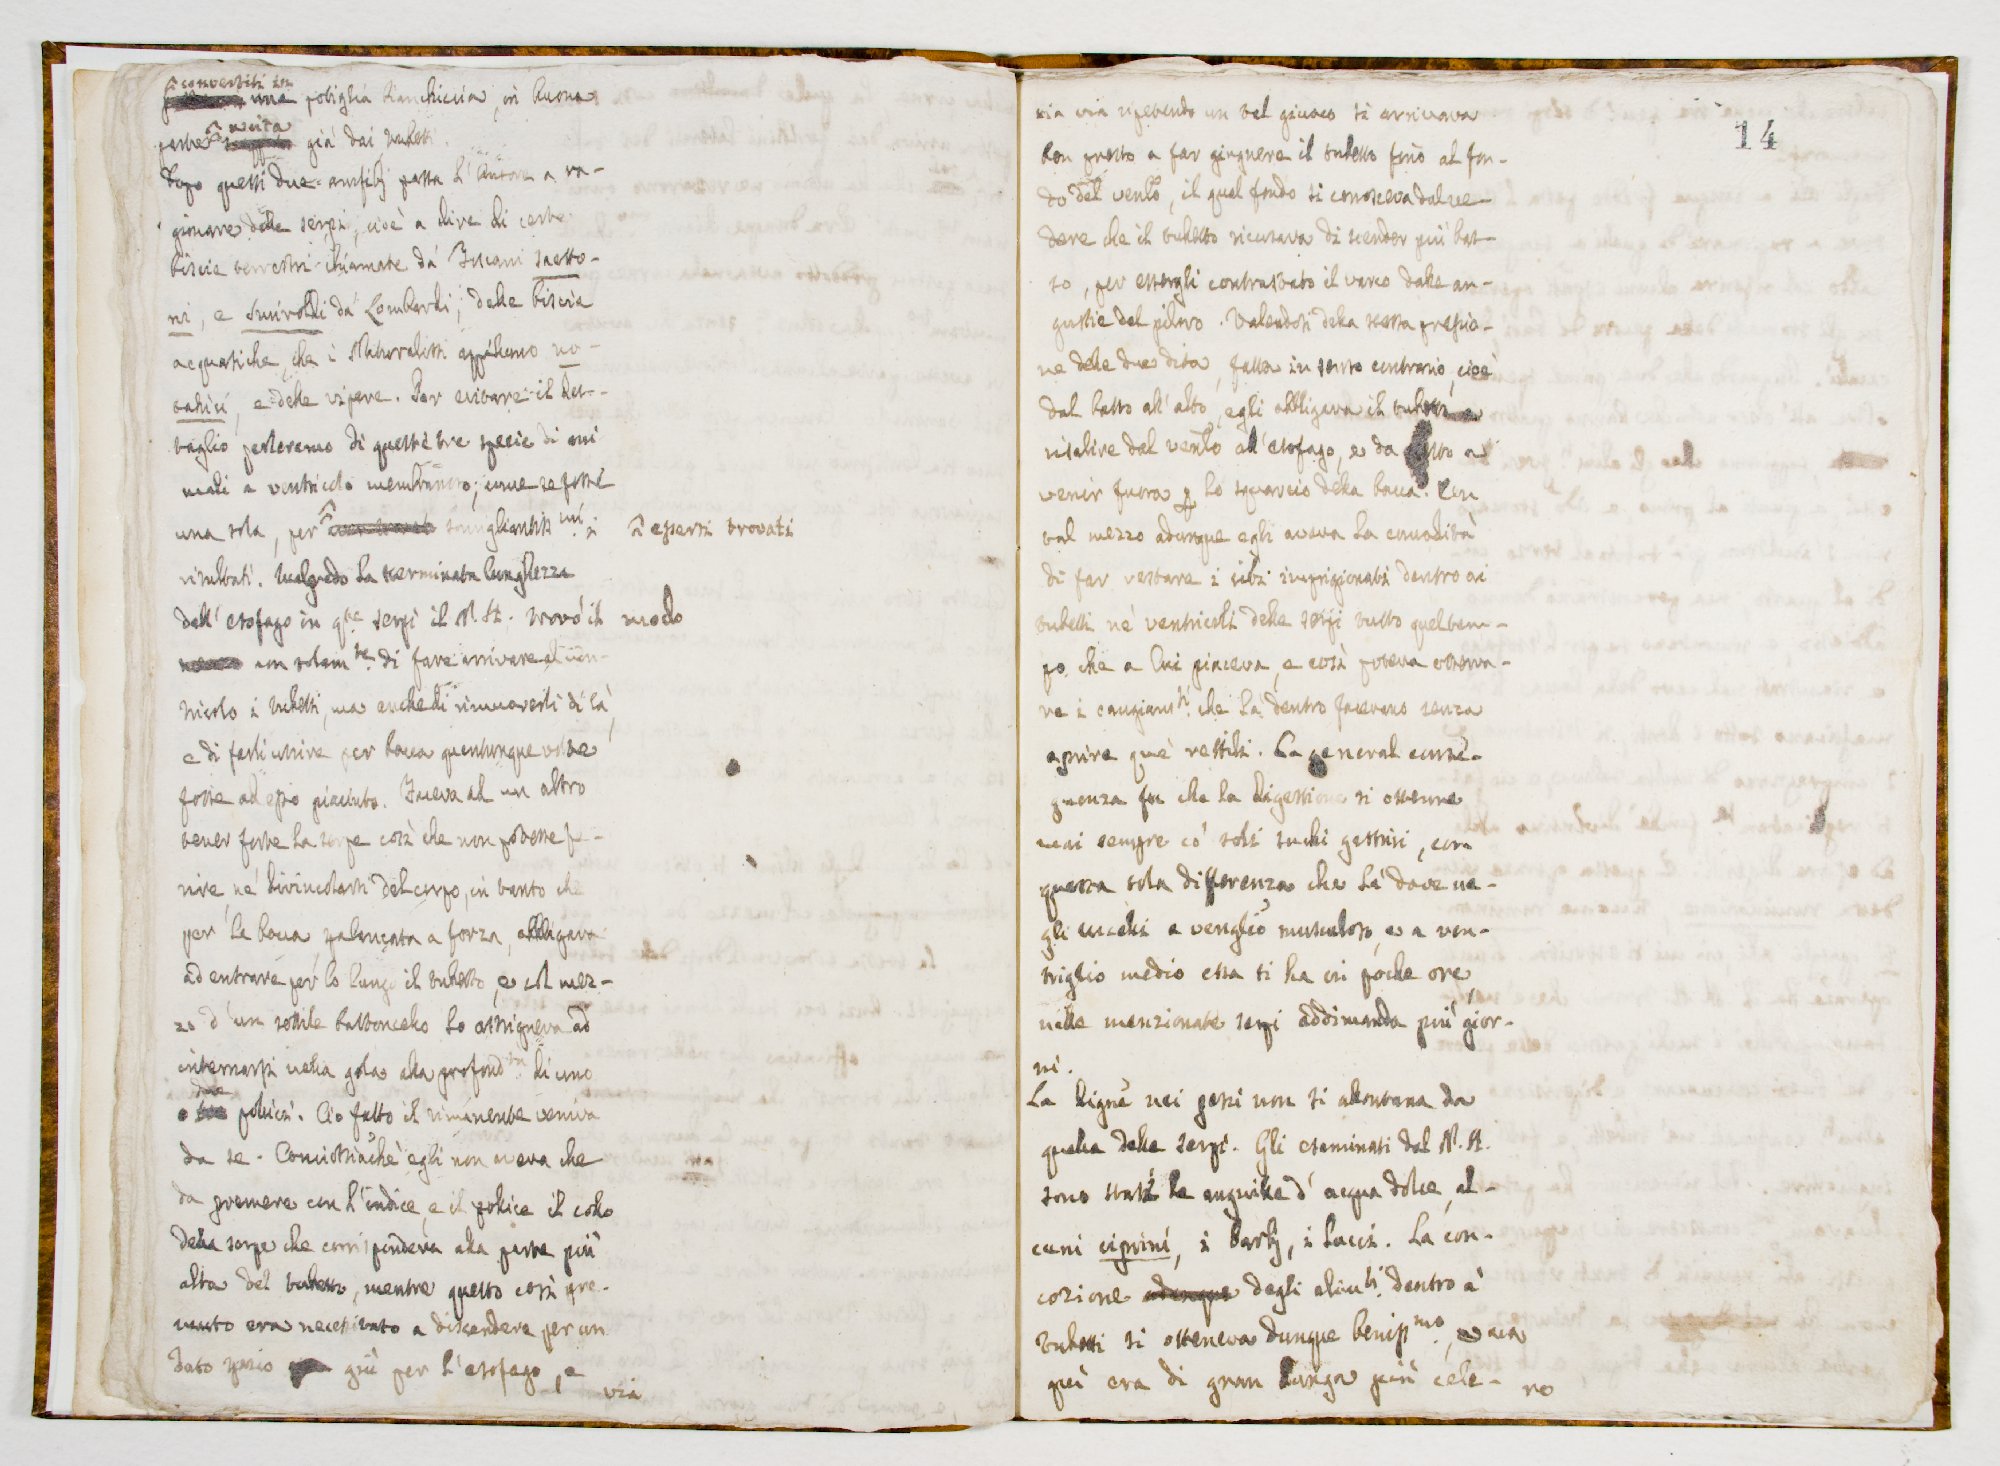 convertiti in
una potiglia bianchiccia, in buona
uscita
parte già dai tubetti.
Dopo questi due amfibj passa l'Autore a ra-
gionare delle serpi, cioè a dire di certe
biscie terrestri chiamate da' Toscani saetto-
ni, e smiroldi da' Lombardi; delle biscie
acquatiche, che i Naturalisti appellano na-
tatrici, e delle vipere. Per evitare il det-
taglio parleremo di queste tre specie di ani-
mali a ventricolo membranoso, come se fosse
una sola, per somigliantissmi i
essersi trovati
risultati. Malgrado la sterminata lunghezza
dell'esofago in qste serpi il N. A. trovò il modo
non solamte di fare arrivare al ven-
tricolo i tubetti, ma anche di rimuoverli di là,
e di farli uscire per bocca quantunque volte
fosse ad esso piaciuto. Faceva ad un altro
tener forte la serpe così che non potesse fe-
rire, né divincolarsi del corpo, in tanto che
per la bocca spalancata a forza, obbligava
ad entrare per lo lungo il tubetto, e col mez-
zo d'un sottile bastoncello lo astrigneva ad
internarsi nella gola alla profondtà di uno
due
o pollici. Ciò fatto il rimanente veniva
da se. Conciossiaché egli non aveva che
da premere con l'indice, e il pollice il collo
della serpe che corrispondeva alla parte più
alta del tubetto, mentre questo così pre-
muto era necessitato a discendere per un
dato spazio giù per l'esofago, e
via
14
via via ripetendo un tal giuoco si arrivava
ben presto a far giugnere il tubetto fino al fon-
do del ventlo, il qual fondo si conosceva dal ve-
dere che il tubetto ricusava di scender più bas-
so, per essergli contrastato il varco dalle an-
gustie del piloro. Valendosi della stessa pressio-
ne delle due dita, fatta in senso contrario, cioè
dal basso all'alto, egli obbligava il tubetto a
risalire dal ventlo all'esofago, e da esso a
venir fuora p lo squarcio della bocca. Con
tal mezzo adunque egli aveva la comodità
di far restare i cibi imprigionati dentro ai
tubetti ne' ventricoli delle serpi tutto quel tem-
po che a lui piaceva, e così poteva osserva-
re i cangiamti che là dentro facevano senza
aprire que' rettili. La general conse-
guenza fu che la digestione si ottenne
mai sempre co' soli suchi gastrici, con
questa sola differenza che là dove ne-
gli uccelli a venglio muscoloso, e a ven-
triglio medio essa si ha in poche ore,
nelle menzionate serpi addimanda più gior-
ni.
La digne nei pesci non si allontana da
quella delle serpi. Gli esaminati dal N. A.
sono stati le anguille d'acqua dolce, al-
cuni ciprini, i barbj, i lucci. La con-
cozione degli alimti dentro a'
tubetti si otteneva dunque benissmo, ma
qui era di gran lunga più cele-
re